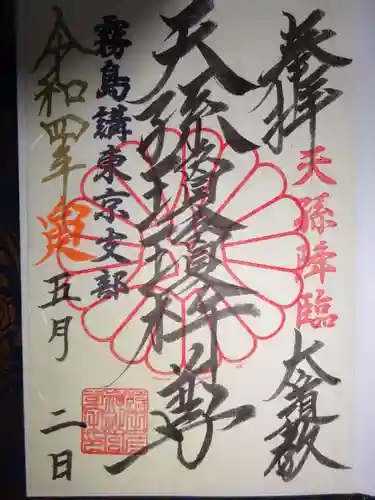 奉拝
天孫降臨
大須敬
天孫瓊瓊杵尊
霧島講東京支部
令和四年
寅
五月二日